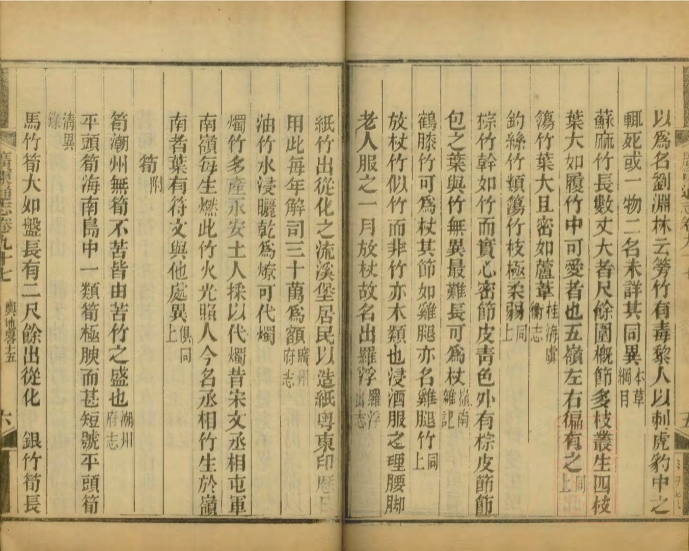 以為名劉淵林云篣竹有毒黎人以刺虎豹中之
輒死或一物二名未詳其同異本草綱目
蘇麻竹長數丈大者尺餘圍概節多枝叢生四枝
葉大如履竹中可愛者也五嶺左右徧有之同上
簜竹葉大且密如蘆葦桂海虞衡志
釣絲竹類簜竹枝極柔弱同上
棕竹幹如竹而實心密節皮青色外有棕皮節節
包之葉與竹無異最難長可為杖嶺南雜記
鶴膝竹可為杖其節如雞腿亦名雞腿竹同上
放杖竹似竹而非竹亦木類也浸酒服之理腰脚
老人服之一月放杖故名出羅浮羅浮山志
紙竹出從化之流溪堡居民以造紙粵東印曆日
用此每年解司三十萬為額廣州府志
油竹水浸曬乾為燎可代燭
燭竹多產永安土人採以代燭昔宋文丞相屯軍
南嶺每生燃此竹火光照人今名丞相竹生於嶺
南者葉有符文與他處異俱同上
筍附
筍潮州無筍不苦皆由苦竹之盛也潮州府志
平頭筍海南島中一類筍極腴而甚短號平頭筍
清異錄
馬竹筍大如盤長有二尺餘出從化 銀竹筍長
廣東通志卷九十七 輿地畧十五 六